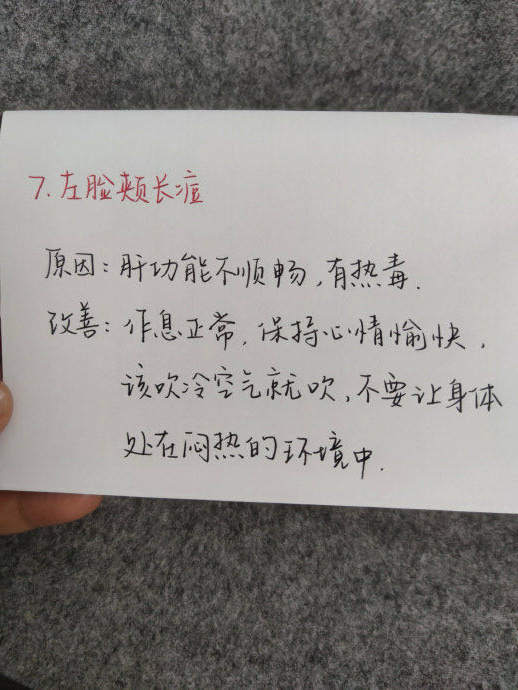 7.左脸颊长痘
原因:肝功能不顺畅,有热毒.
改善:作息正常,保持心情愉快,
该吹冷空气就吹,不要让身体
处在闷热的环境中.